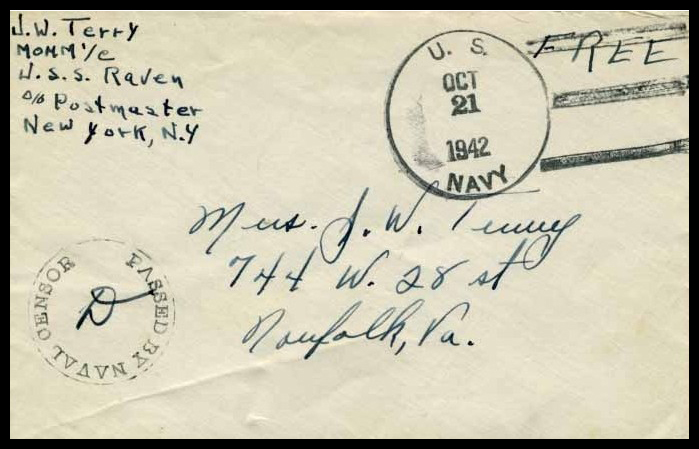 J.W. Terry
MOMM 1/c
U.S.S. Raven
c/o Postmaster
New York, N.Y
U. S.
OCT
21
1942
NAVY
FREE
Mrs. J. W. Terry
744 W. 28 st
Norfolk, Va.
PASSED BY NAVAL CENSOR
D